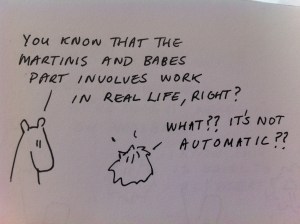 YOU KNOW THAT THE
MARTINIS AND BABES
PART INVOLVES WORK
IN REAL LIFE, RIGHT?
WHAT?? IT'S NOT
AUTOMATIC??